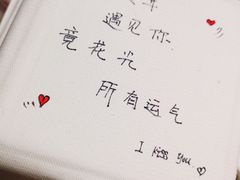 遇见你
竟花光
所有运气
I kiss you